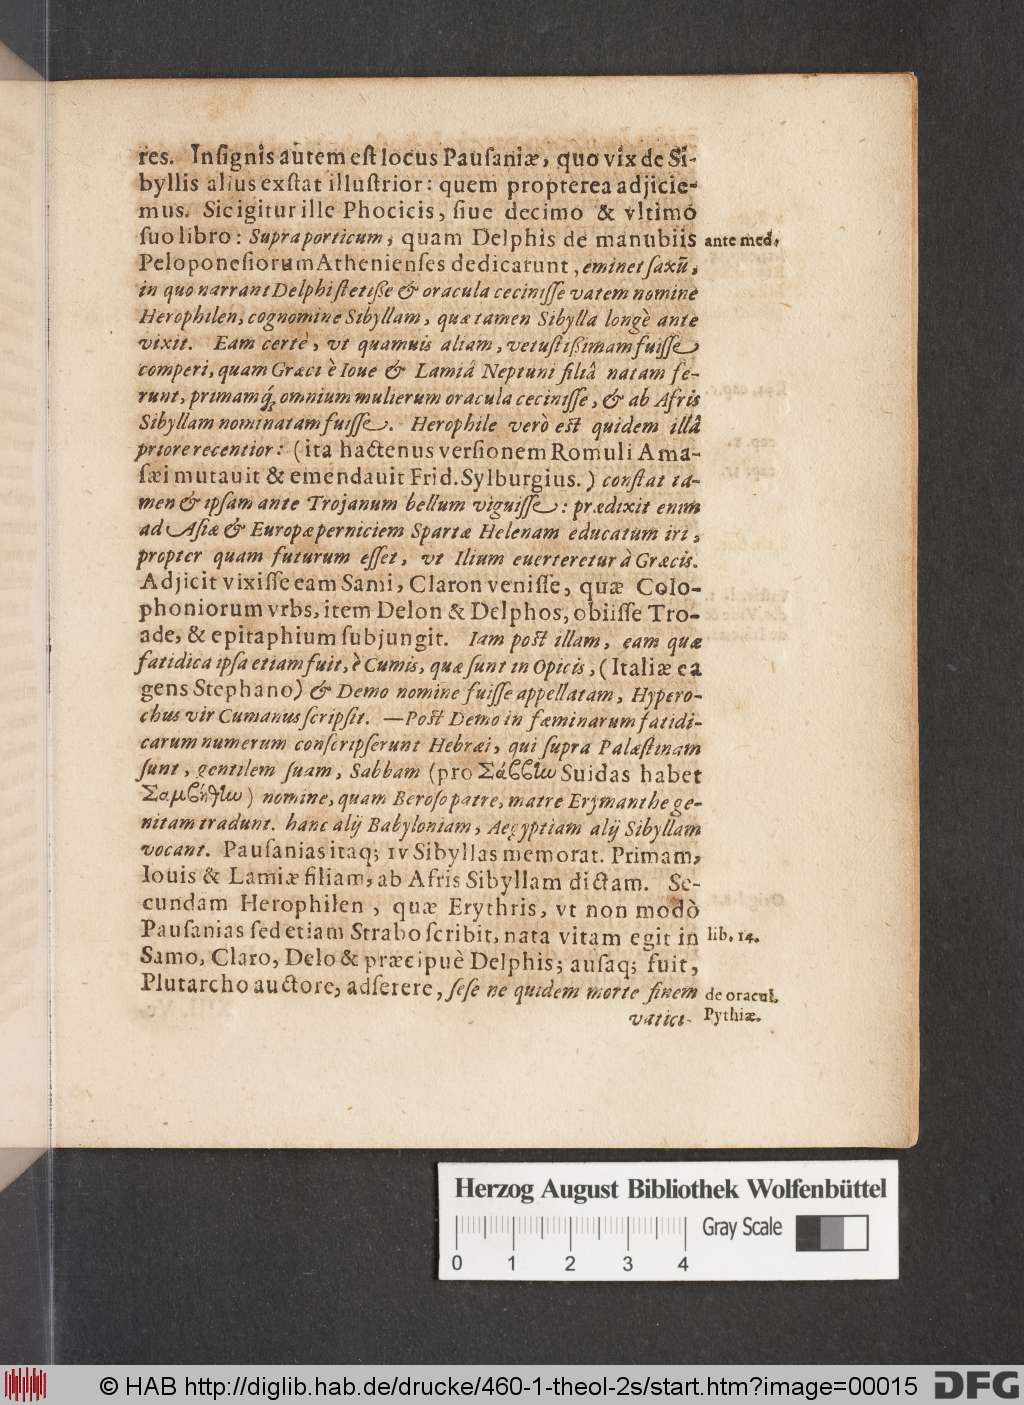 res. Inſignis autem eſt locus Pauſaniæ, quo vix de Si-
byllis alius exſtat illuſtrior: quem propterea adjicie-
mus. Sic igitur ille Phocicis, ſiue decimo & vltimo
ſuo libro: Supra porticum, quam Delphis de manubiis
ante med.
Peloponeſiorum Athenienſes dedicarunt, eminet ſaxũ,
in quo narrant Delphi ſtetiſſe & oracula ceciniſſe vatem nomine
Herophilen, cognomine Sibyllam, quæ tamen Sibylla longè ante
vixit. Eam certè, vt quamuis aliam, vetuſtiſſimam fuiſſe
comperi, quam Græci è Ioue & Lamiâ Neptuni filiâ natam fe-
runt, primamq́; omnium mulierum oracula ceciniſſe, & ab Afris
Sibyllam nominatam fuiſſe. Herophile verò eſt quidem illâ
priore recentior: (ita hactenus verſionem Romuli Ama-
ſæi mutauit & emendauit Frid. Sylburgius.) conſtat ta-
men & ipſam ante Trojanum bellum viguiſſe: prædixit enim
ad Aſiæ & Europæ perniciem Spartæ Helenam educatum iri,
propter quam futurum eſſet, vt Ilium euerteretur à Græcis.
Adjicit vixiſſe eam Sami, Claron veniſſe, quæ Colo-
phoniorum vrbs, item Delon & Delphos, obiiſſe Tro-
ade, & epitaphium ſubjungit. Iam poſt illam, eam quæ
fatidica ipſa etiam fuit, è Cumis, quæ ſunt in Opicis, (Italiæ ea
gens Stephano) & Demo nomine fuiſſe appellatam, Hypero-
chus vir Cumanus ſcripſit. —Poſt Demo in fæminarum fatidi-
carum numerum conſcripſerunt Hebræi, qui ſupra Palæſtinam
ſunt, gentilem ſuam, Sabbam (pro Σάββίω Suidas habet
Σαμβήθίω) nomine, quam Beroſo patre, matre Erymanthe ge-
nitam tradunt. hanc alij Babyloniam, Aegyptiam alij Sibyllam
vocant. Pauſanias itaq; IV Sibyllas memorat. Primam,
Iouis & Lamiæ filiam, ab Afris Sibyllam dictam. Se-
cundam Herophilen, quæ Erythris, vt non modò
Pauſanias ſed etiam Strabo ſcribit, nata vitam egit in
lib. 14.
Samo, Claro, Delo & præcipuè Delphis; auſaq; fuit,
Plutarcho auctore, adſerere, ſeſe ne quidem morte finem
de oracul.
Pythiæ.
vatici-
Herzog August Bibliothek Wolfenbüttel
Gray Scale
0 1 2 3 4
© HAB http://diglib.hab.de/drucke/460-1-theol-2s/start.htm?image=00015
DFG